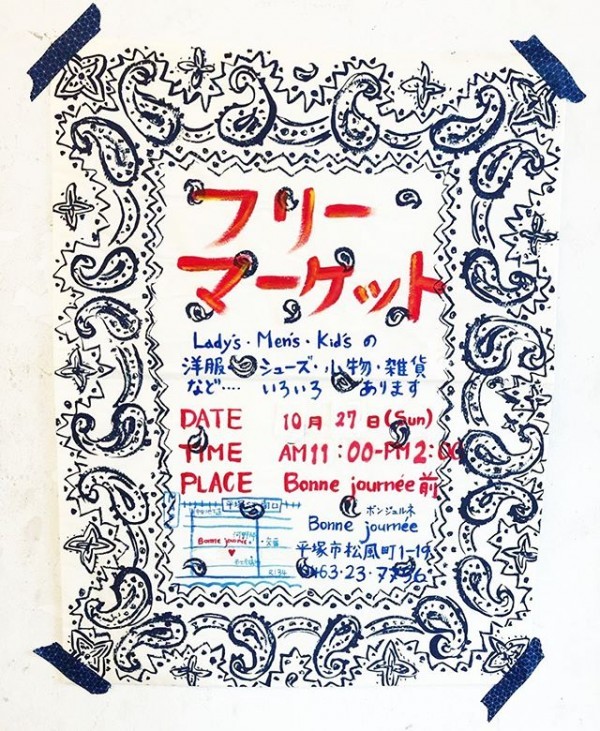 フリー
マーケット
Lady's・Men's・Kid's の
洋服・シューズ・小物・雑貨
など‥‥ いろいろ あります
DATE 10月27日(Sun)
TIME AM11:00-PM2:00
PLACE Bonne journée前
ボンジュルネ
Bonne journée
平塚市松風町1-19
0463・23・7736
Bonne journée.
R134